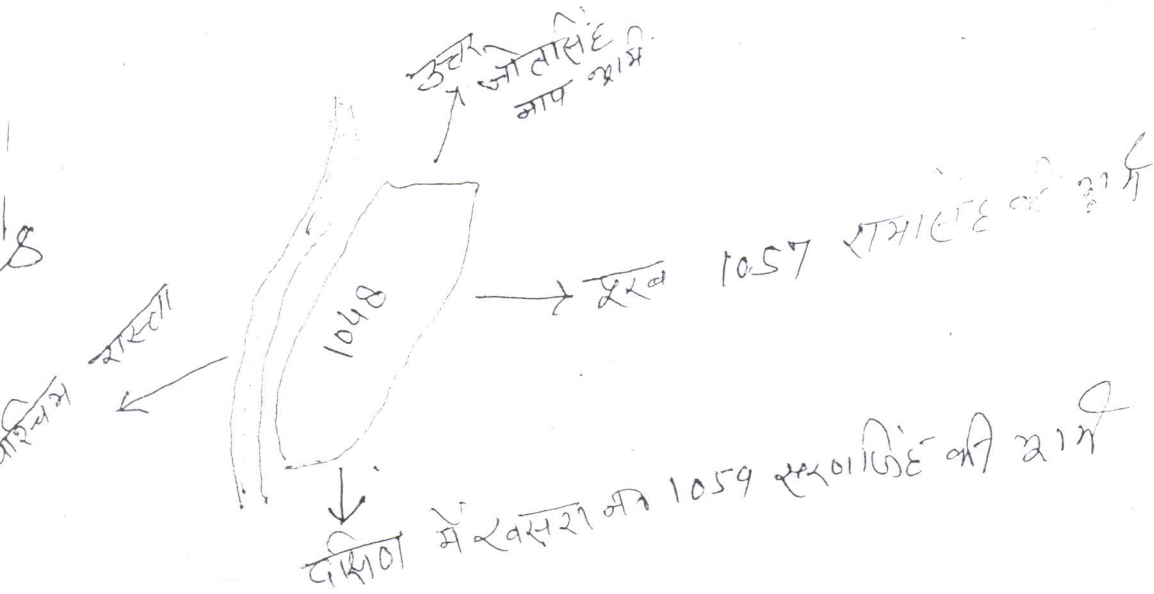 उत्तर जोतसिंह
नाप भूमि
8
1048
पूरब 1057 रामसिंह की भूमि
पश्चिम रास्ता
दक्षिण में खसरा न० 1059 सुरणसिंह की भूमि